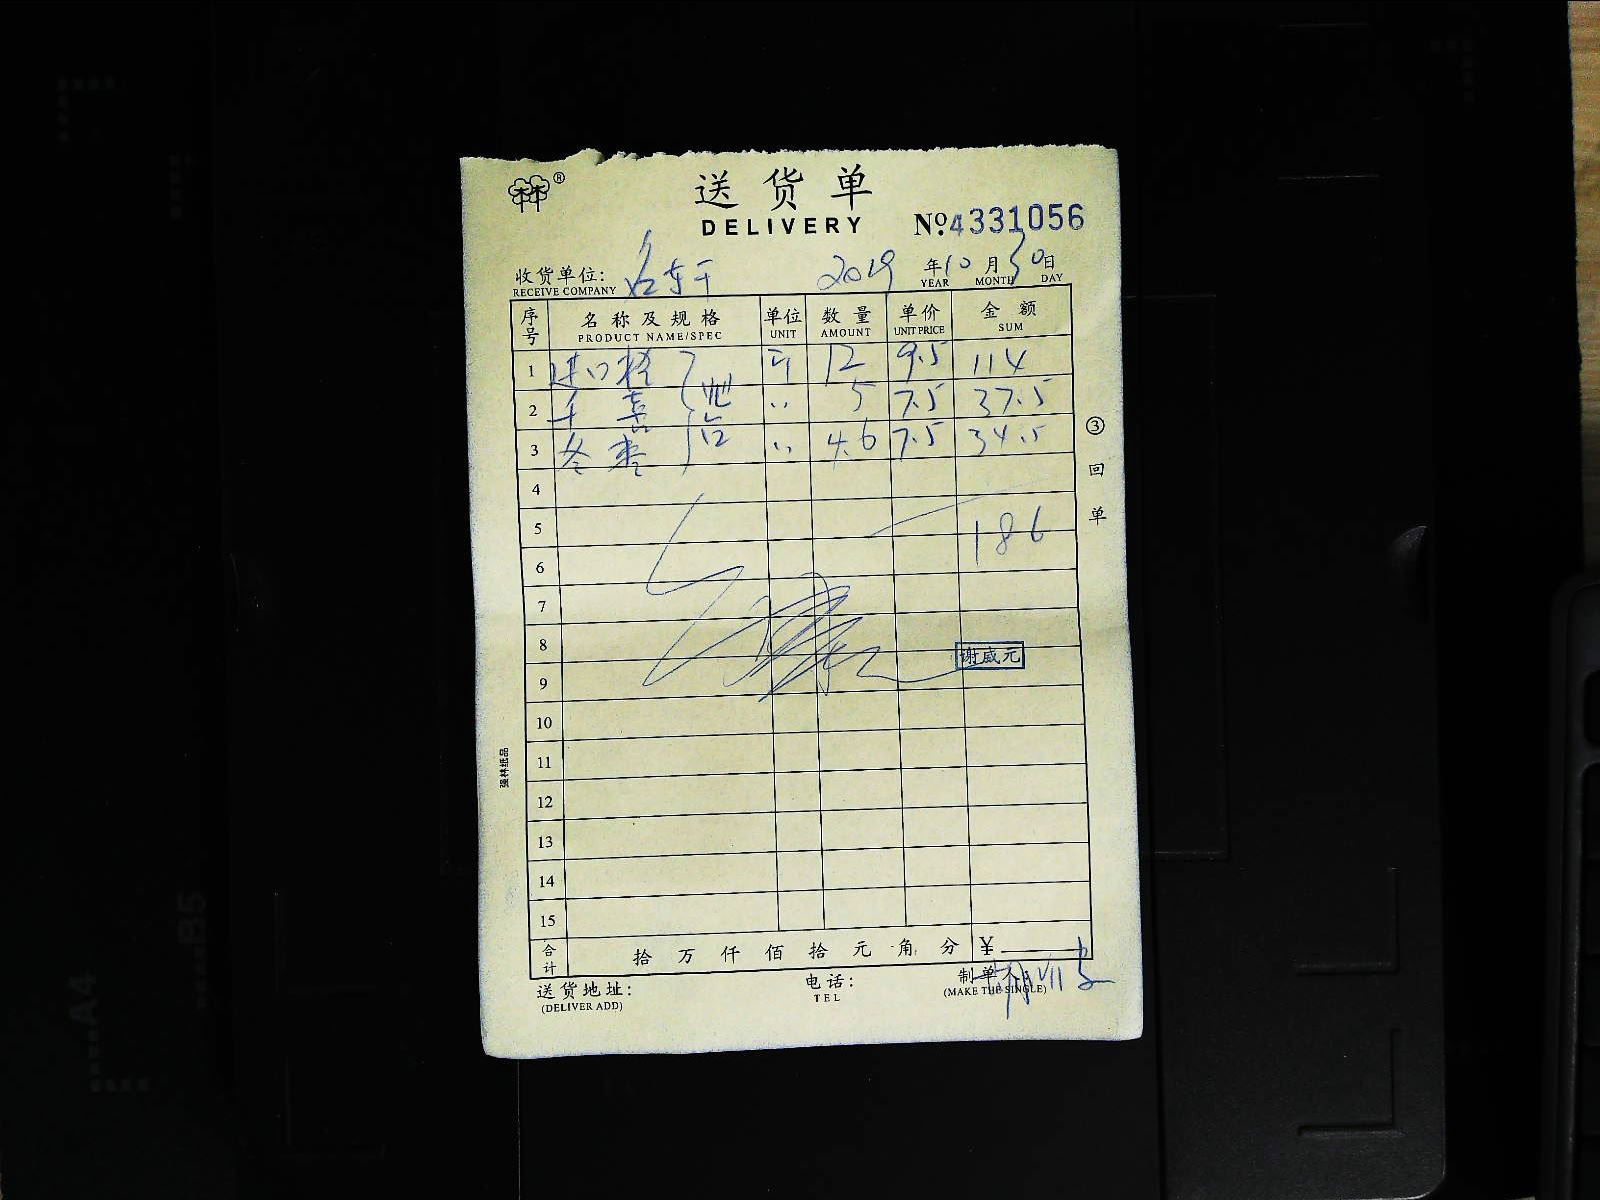 ®
送货单
DELIVERY № 4331056
收货单位: 2019 年 10 月 30 日
RECEIVE COMPANY YEAR MONTH DAY
序号 名称及规格 单位 数量 单价 金额
PRODUCT NAME/SPEC UNIT AMOUNT UNIT PRICE SUM
1 进口橙 斤 12 9.5 114
2 千喜 〃 5 7.5 37.5
3 冬枣 〃 4.6 7.5 34.5
4
5
186
6
7
8
谢威元
9
10
11
12
13
14
15
合计 拾 万 仟 佰 拾 元 角 分 ¥
送货地址: 电话: 制单人:
(DELIVER ADD) TEL (MAKE THE SINGLE)
③回单
强林纸品
A4
B5